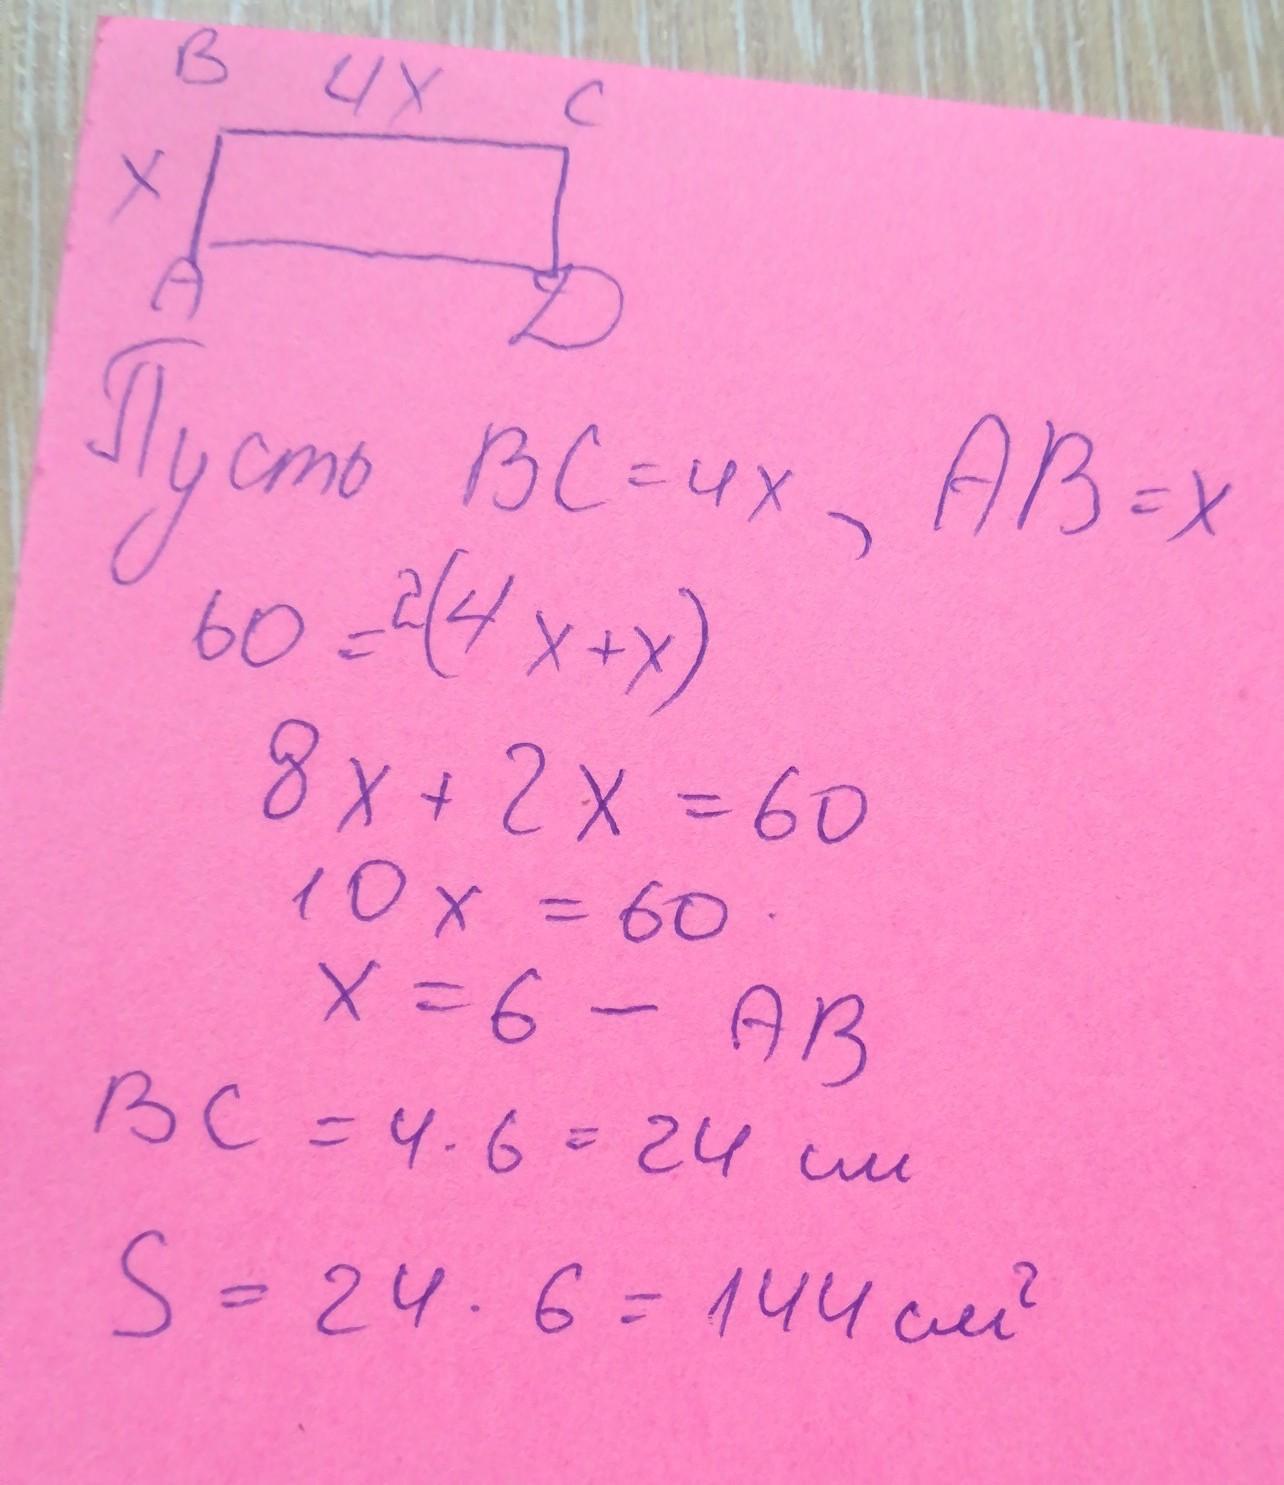 B 4x C
x
A D
Пусть BC = 4x, AB = x
60 = 2(4x+x)
8x + 2x = 60
10x = 60
x = 6 – AB
BC = 4 · 6 = 24 см
S = 24 · 6 = 144 см²